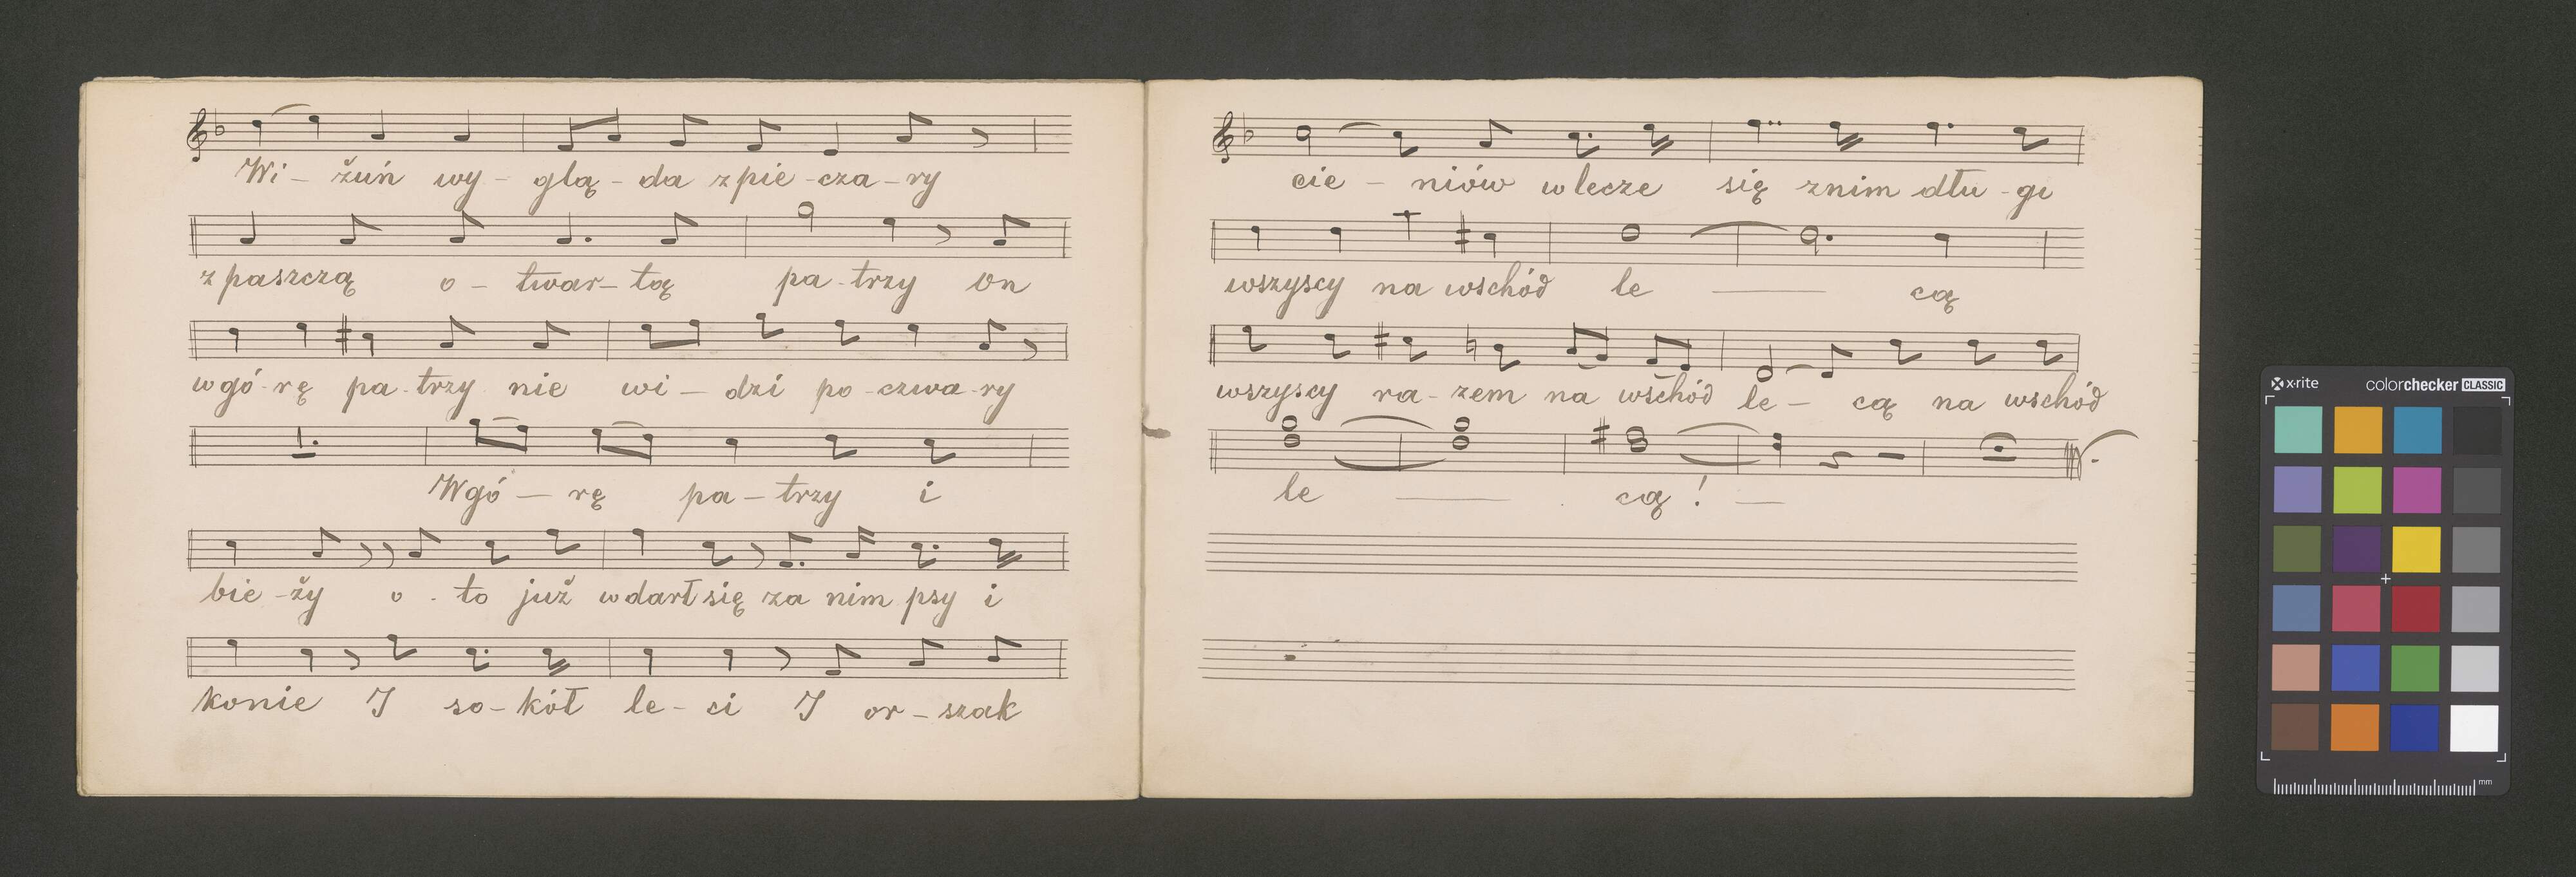 Wi – žuń wy – glą – da z pie – cza – ry
z paszczą o – twar – tą pa - trzy On
w gó - rę pa - trzy nie wi – dzi po – czwa - ry
W gó – rę pa – trzy i
bie – ży o - to już wdarł się za nim psy i
konie I so – kół le – ci I or – szak
cie – niów wlecze się z nim dłu - gi
wszyscy na wschód le — cą
wszyscy ra - zem na wschód le – cą na wschód
le — cą! —
x·rite colorchecker CLASSIC
mm